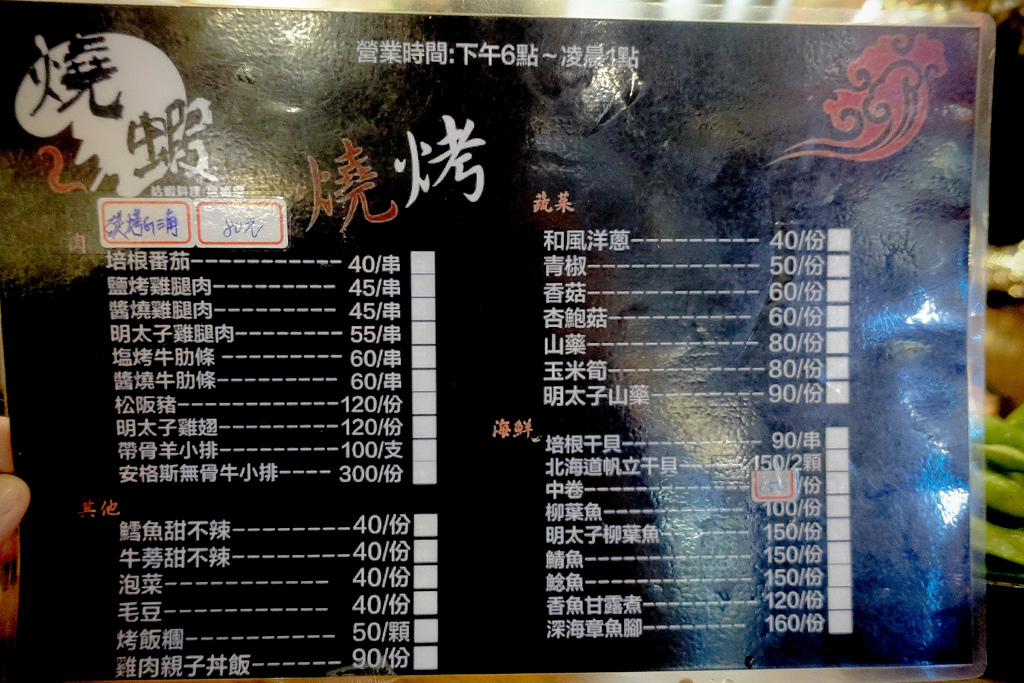 營業時間:下午6點~凌晨1點
燒蝦
燒烤
肉
80元
培根番茄 40/串
鹽烤雞腿肉 45/串
醬燒雞腿肉 45/串
明太子雞腿肉 55/串
塩烤牛肋條 60/串
醬燒牛肋條 60/串
松阪豬 120/份
明太子雞翅 120/份
帶骨羊小排 100/支
安格斯無骨牛小排 300/份
其他
鱈魚甜不辣 40/份
牛蒡甜不辣 40/份
泡菜 40/份
毛豆 40/份
烤飯糰 50/顆
雞肉親子丼飯 90/份
蔬菜
和風洋蔥 40/份
青椒 50/份
香菇 60/份
杏鮑菇 60/份
山藥 80/份
玉米筍 80/份
明太子山藥 90/份
海鮮
培根干貝 90/串
北海道帆立干貝 150/2顆
中卷 /份
柳葉魚 100/份
明太子柳葉魚 150/份
鯖魚 150/份
鯰魚 150/份
香魚甘露煮 120/份
深海章魚腳 160/份